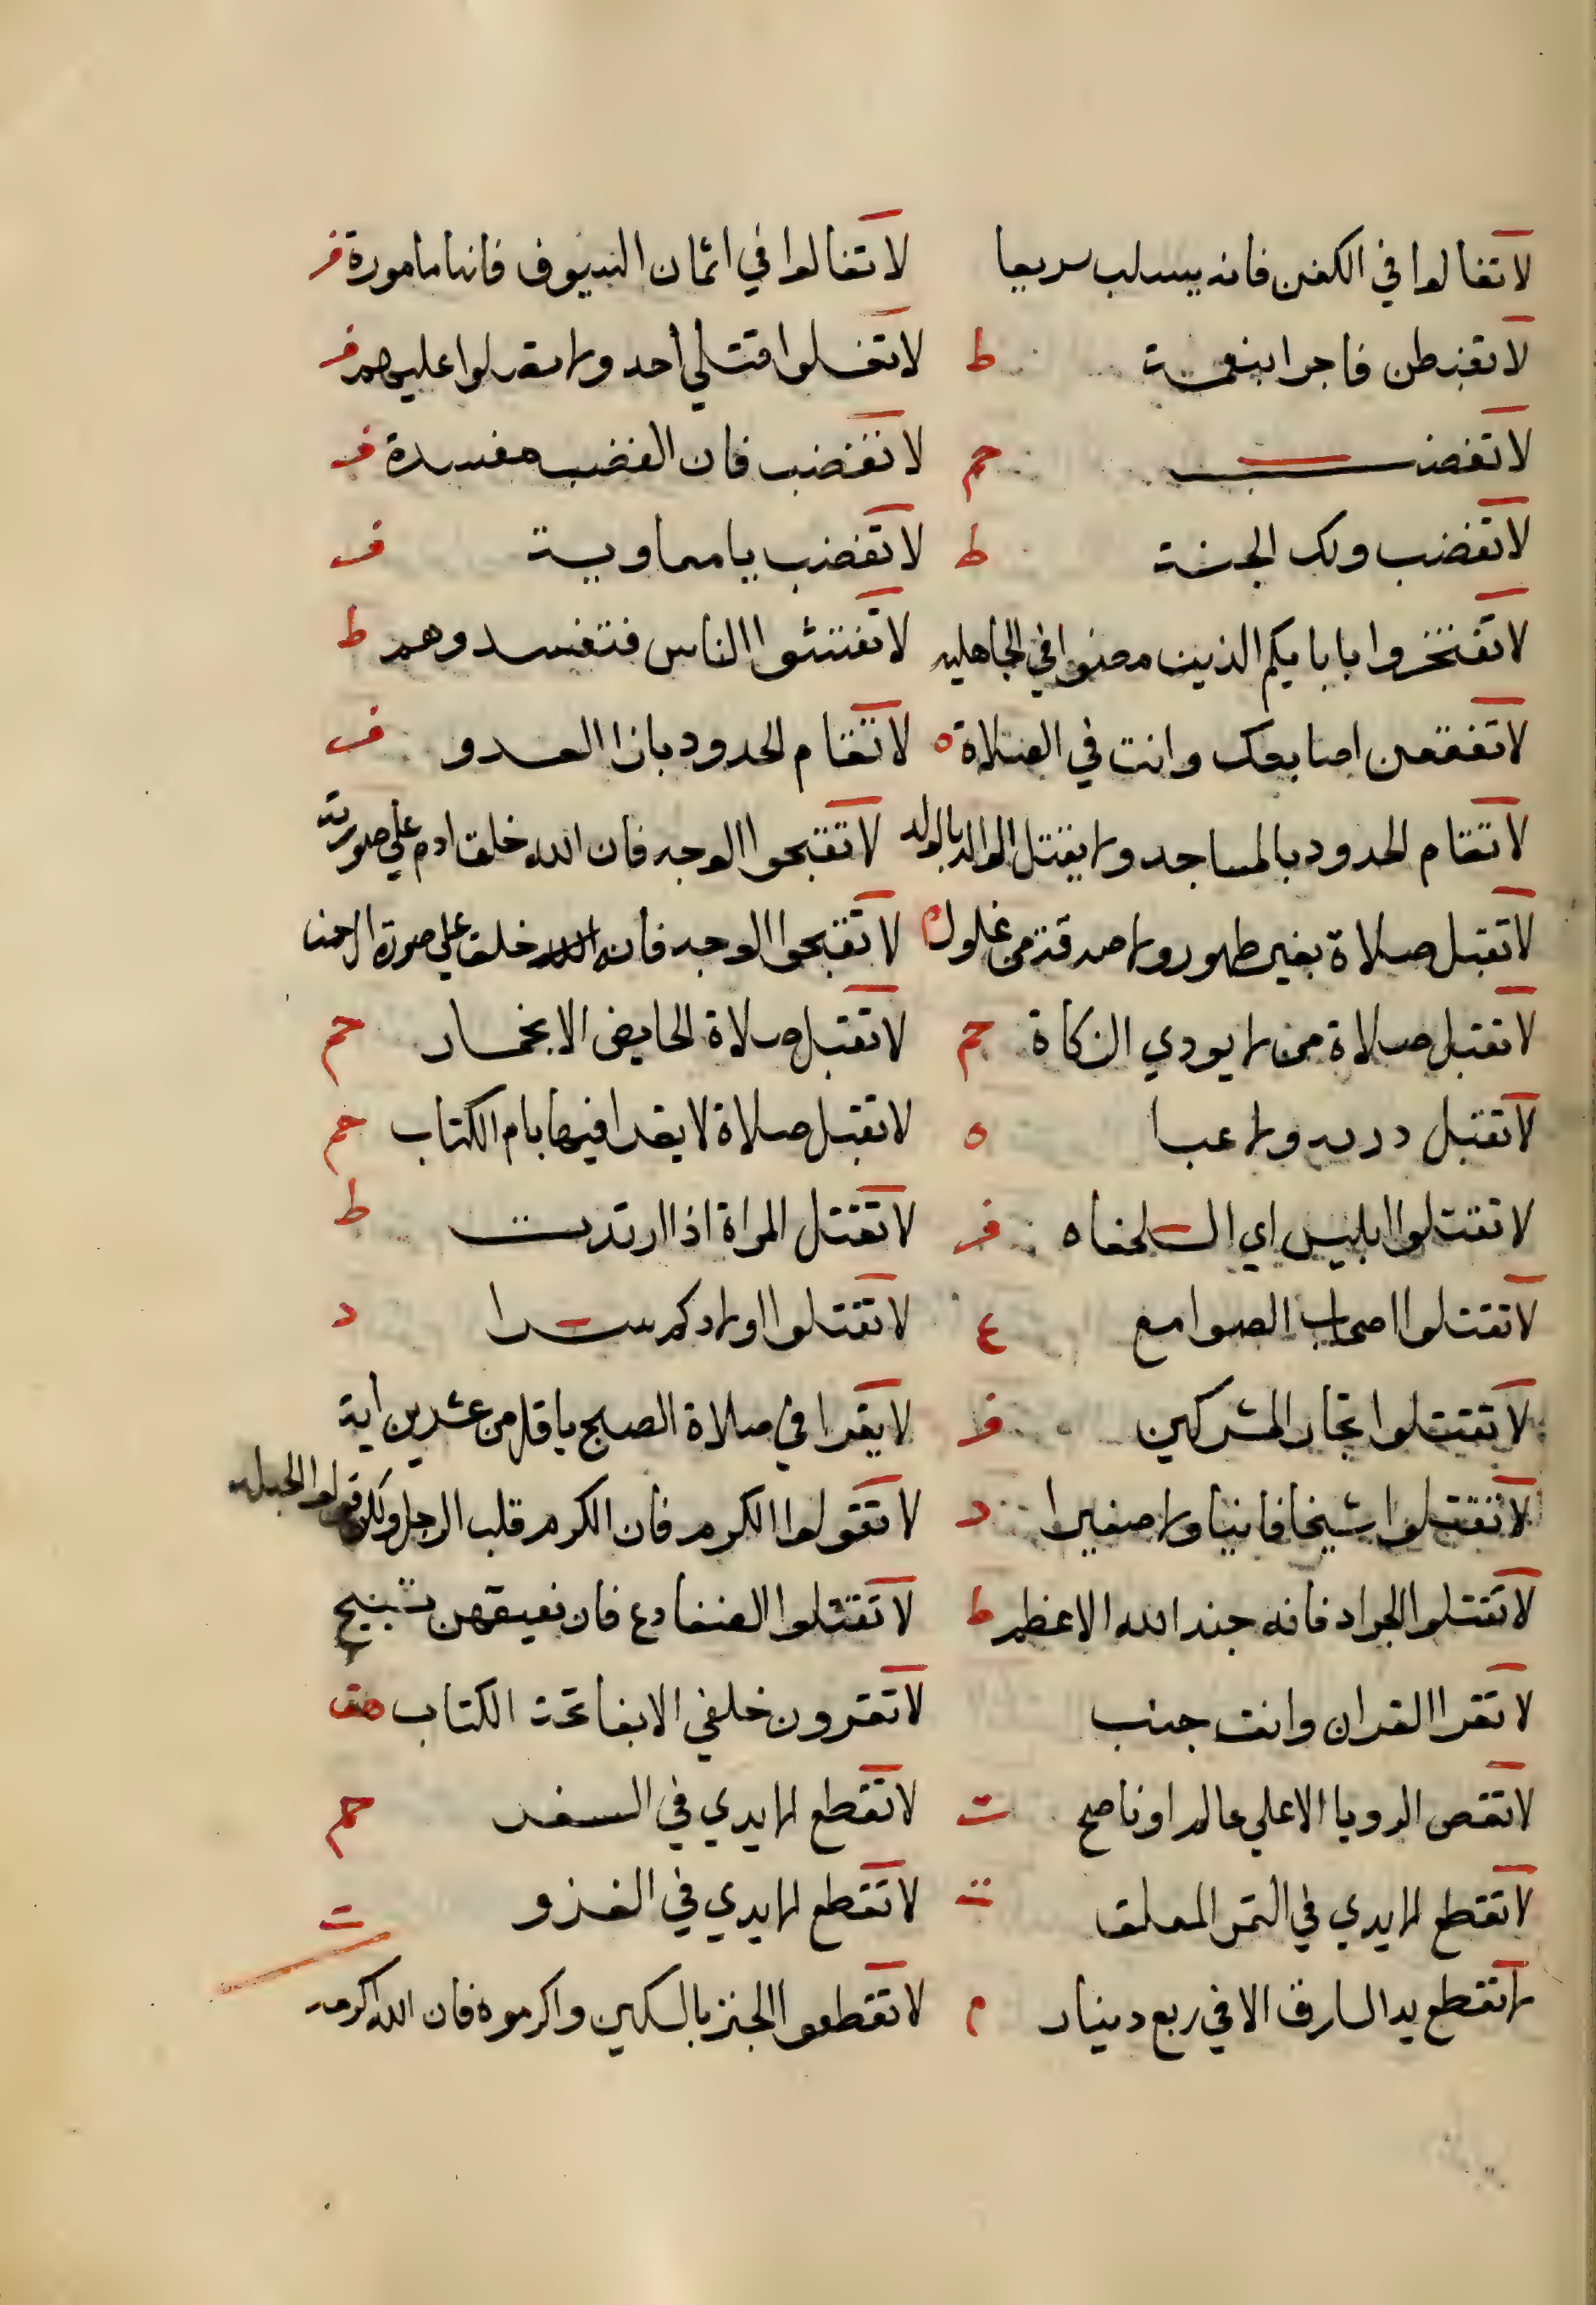 لا تغالوا في الكفن فانه يسلب سريعا لا تغالوا في اثمان السيوف فانها مامورة فر
لا تغبطن فاجرا بنعمة ط لا تغسلوا قتلي أحد ولا عليهم فر
لا تغضب حم لا تغضب فان الغضب مفسدة فر
لا تغضب ولك الجنة ط لا تغضب يا معاوية فر
لا تفتخروا بابايكم الذين مضوا في الجاهلية لا تفتشوا الناس فتفسدوهم ط
لا تفقعن اصابعك وانت في الصلاة ه لا تقام الحدود بازا العدو فر
لا تقام الحدود بالمساجد ولا يقتل الوالد بالولد لا تقبحوا الوجه فان الله خلق ادم علي صورته
لا تقبل صلاة بغير طهور ولا صدقة من غلول م لا تقبحوا الوجه فان خلق علي صورة الرحمن
لا تقبل صلاة من لا يودي الزكاة حم لا تقبل صلاة الحايض الا بخمار حم
لا تقبل ولا عبا ه لا تقبل صلاة لا يقرا فيها بام الكتاب حم
لا تقتلوا ابليس اي السلحفاه فر لا تقتل المراة اذا ارتدت ط
لا تقتلوا اصحاب الصوامع ع لا تقتلوا اولادكم سرا د
لا تقتلوا تجار المشركين فر لا يقرا في صلاة الصبح باقل من عشرين اية
لا تقتلوا شيخا فانيا ولا صغيرا د لا تقولوا الكرم فان الكرم قلب الرجل ولكن قولوا الحبلة
لا تقتلوا الجراد فانه جند الله الاعظم ط لا تقتلوا الضفادع فان نعيقهن تسبيح
لا تقرا القران وانت جنب لا تقرون خلفي الا بفاتحة الكتاب هق
لا تقص الرويا الا علي عالم او ناصح ت لا تقطع الايدي في السفر حم
لا تقطع الايدي في الثمر المعلق ت لا تقطع الايدي في الغزو ت
لا تقطع يد السارق الا في ربع دينار م لا تقطعوا الخبز بالسكين واكرموه فان الله اكرمه